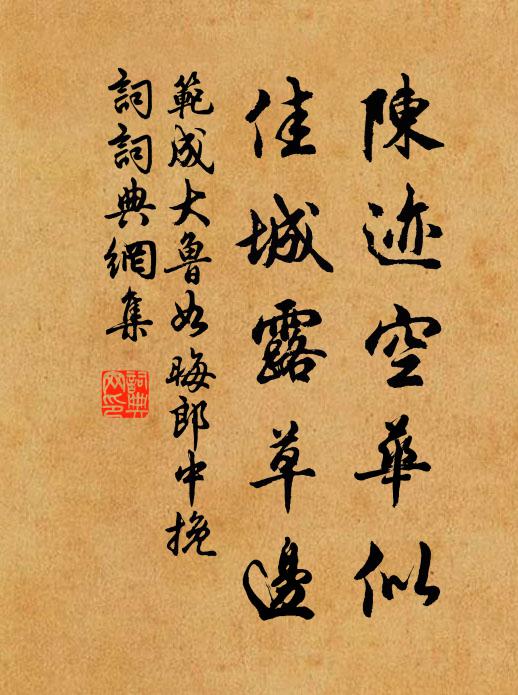 陳迹空華似
佳城露草邊
範成大魯如晦郎中挽
詞詞典網集
詞典網印